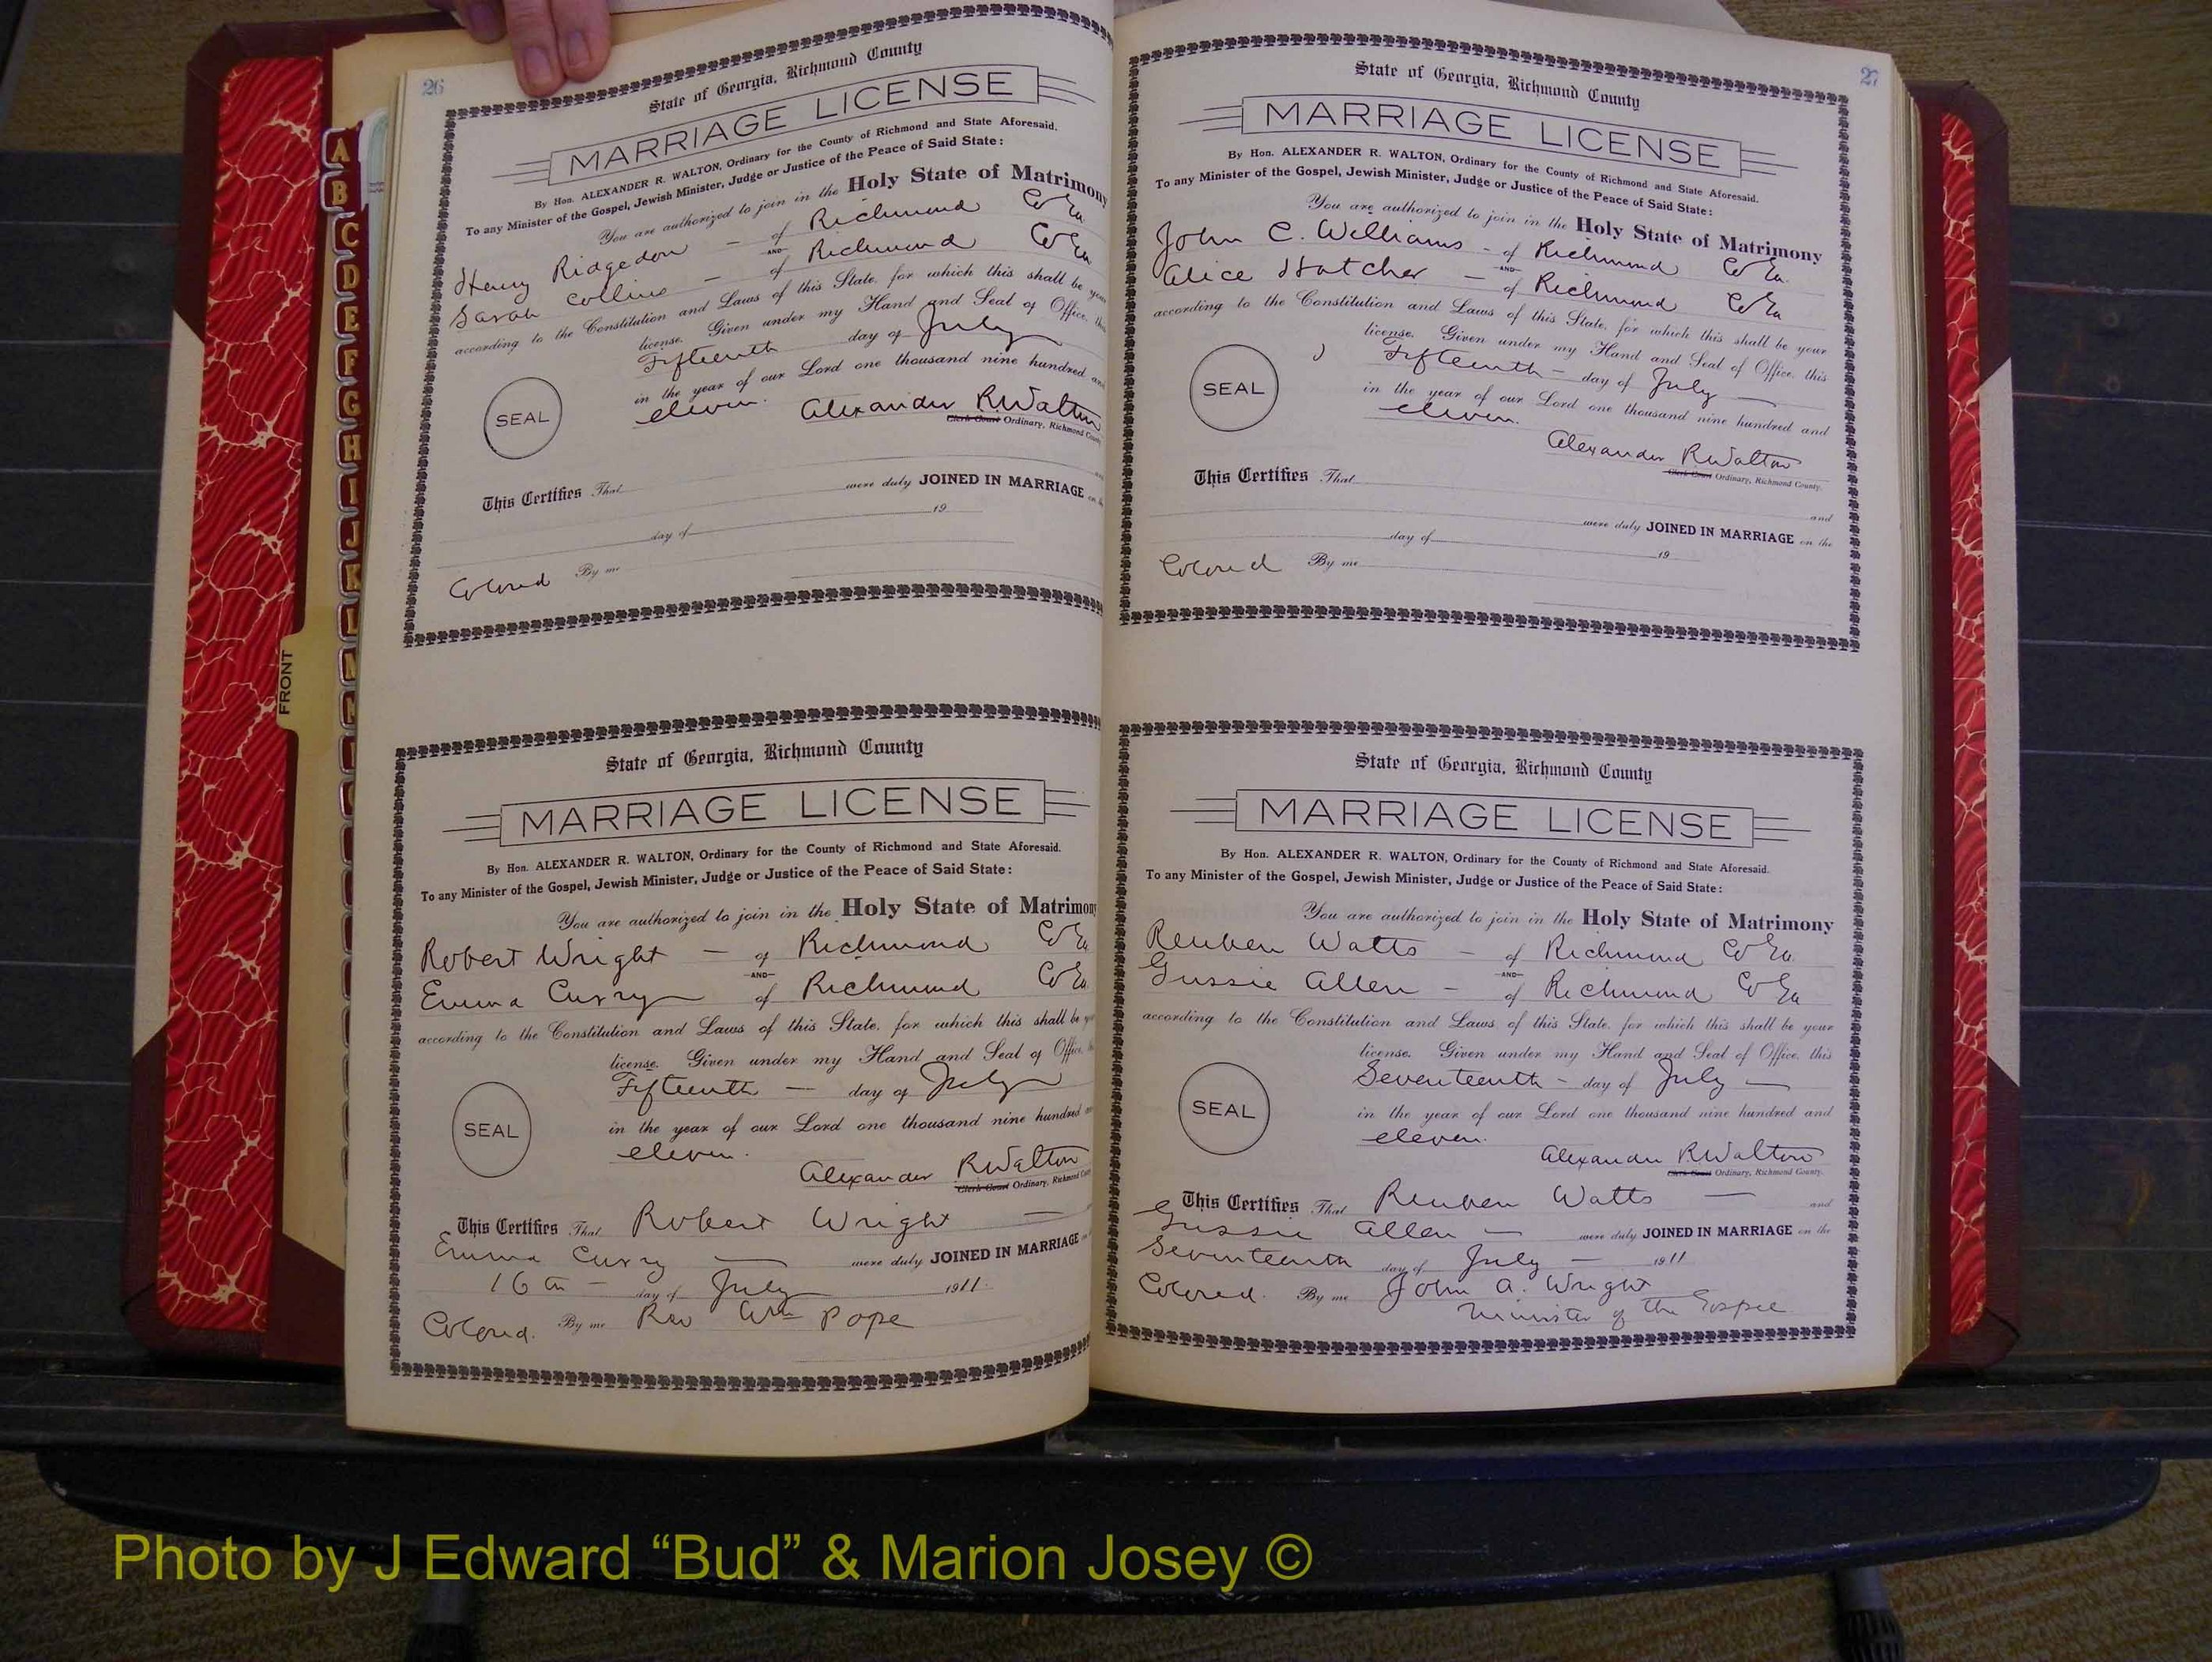 26
State of Georgia, Richmond County
MARRIAGE LICENSE
By Hon. ALEXANDER R. WALTON, Ordinary for the County of Richmond and State Aforesaid.
To any Minister of the Gospel, Jewish Minister, Judge or Justice of the Peace of Said State:
You are authorized to join in the Holy State of Matrimony
Henry Ridgedon — of Richmond Co Ga
AND
Sarah Collins — of Richmond Co Ga
according to the Constitution and Laws of this State, for which this shall be your
license. Given under my Hand and Seal of Office, this
Fifteenth day of July
in the year of our Lord one thousand nine hundred and
eleven.
SEAL
Alexander R Walton
Clerk Court Ordinary, Richmond County
This Certifies That and
were duly JOINED IN MARRIAGE on the
day of 19
Colored By me
State of Georgia, Richmond County
MARRIAGE LICENSE
By Hon. ALEXANDER R. WALTON, Ordinary for the County of Richmond and State Aforesaid.
To any Minister of the Gospel, Jewish Minister, Judge or Justice of the Peace of Said State:
You are authorized to join in the Holy State of Matrimony
Robert Wright — of Richmond Co Ga
—AND—
Emma Curry of Richmond Co Ga
according to the Constitution and Laws of this State, for which this shall be your
license. Given under my Hand and Seal of Office, this
Fifteenth — day of July
in the year of our Lord one thousand nine hundred and
eleven.
SEAL
Alexander R Walton
Clerk Court Ordinary, Richmond County
This Certifies That Robert Wright —
Emma Curry — were duly JOINED IN MARRIAGE on
16th — day of July 1911.
Colored. By me Rev Wm Pope
27
State of Georgia, Richmond County
MARRIAGE LICENSE
By Hon. ALEXANDER R. WALTON, Ordinary for the County of Richmond and State Aforesaid.
To any Minister of the Gospel, Jewish Minister, Judge or Justice of the Peace of Said State:
You are authorized to join in the Holy State of Matrimony
John C. Williams - of Richmond Co Ga.
—AND—
Alice Hatcher — of Richmond Co Ga
according to the Constitution and Laws of this State, for which this shall be your
license. Given under my Hand and Seal of Office, this
Fifteenth — day of July —
in the year of our Lord one thousand nine hundred and
eleven.
SEAL
Alexander R Walton
Clerk Court Ordinary, Richmond County.
This Certifies That and
were duly JOINED IN MARRIAGE on the
day of 19
Colored By me
State of Georgia, Richmond County
MARRIAGE LICENSE
By Hon. ALEXANDER R. WALTON, Ordinary for the County of Richmond and State Aforesaid.
To any Minister of the Gospel, Jewish Minister, Judge or Justice of the Peace of Said State:
You are authorized to join in the Holy State of Matrimony
Reuben Watts — of Richmond Co Ga.
—AND—
Gussie Allen — of Richmond Co Ga
according to the Constitution and Laws of this State, for which this shall be your
license. Given under my Hand and Seal of Office, this
Seventeenth - day of July —
in the year of our Lord one thousand nine hundred and
eleven.
SEAL
Alexander R Walton
Clerk Court Ordinary, Richmond County.
This Certifies That Reuben Watts — and
Gussie Allen — were duly JOINED IN MARRIAGE on the
Seventeenth day of July — 1911
Colored. By me John A. Wright
Minister of the Gospel
A
B
C
D
E
F
G
H
I
J
K
L
M
FRONT
Photo by J Edward “Bud” & Marion Josey ©